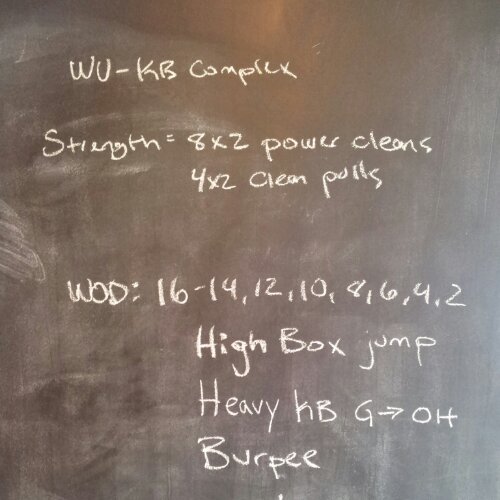 WU-KB Complex
Strength = 8x2 power cleans
4x2 Clean pulls
WOD: 16-14, 12, 10, 8, 6, 4, 2
High Box jump
Heavy KB G→OH
Burpee